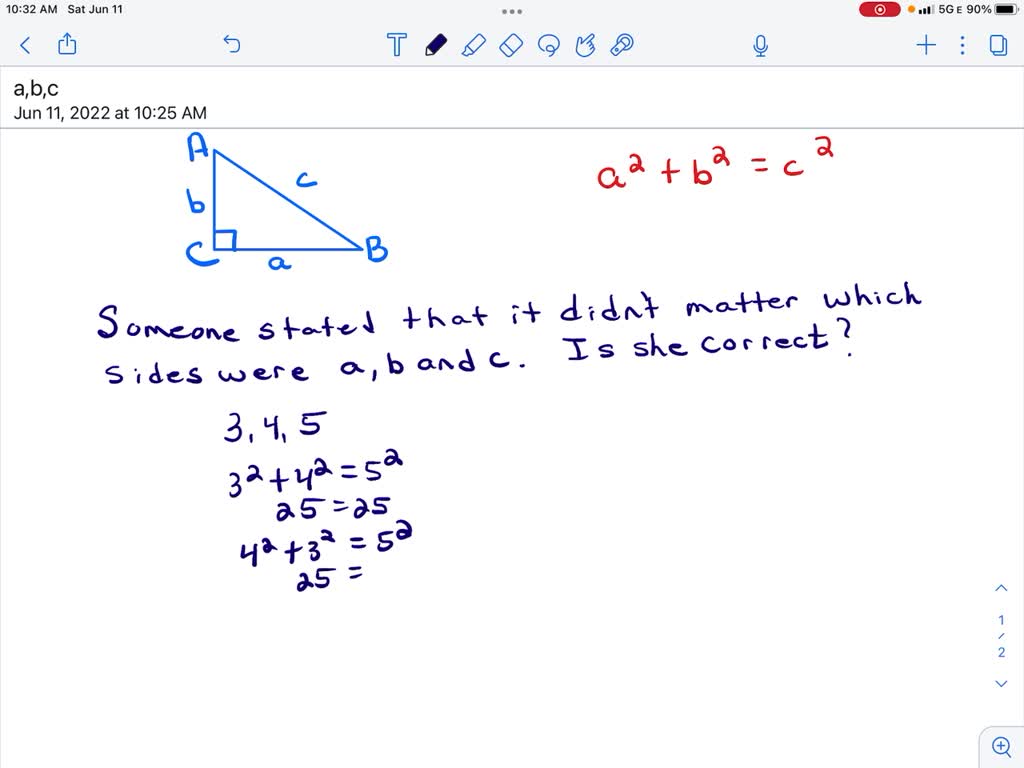 10:32 AM Sat Jun 11
5G E 90%
T
a,b,c
Jun 11, 2022 at 10:25 AM
A
c
b
C
a
B
a² + b² = c²
Someone stated that it didn't matter which
sides were a, b and c. Is she correct?
3, 4, 5
3² + 4² = 5²
25 = 25
4² + 3² = 5²
25 =
1
/
2